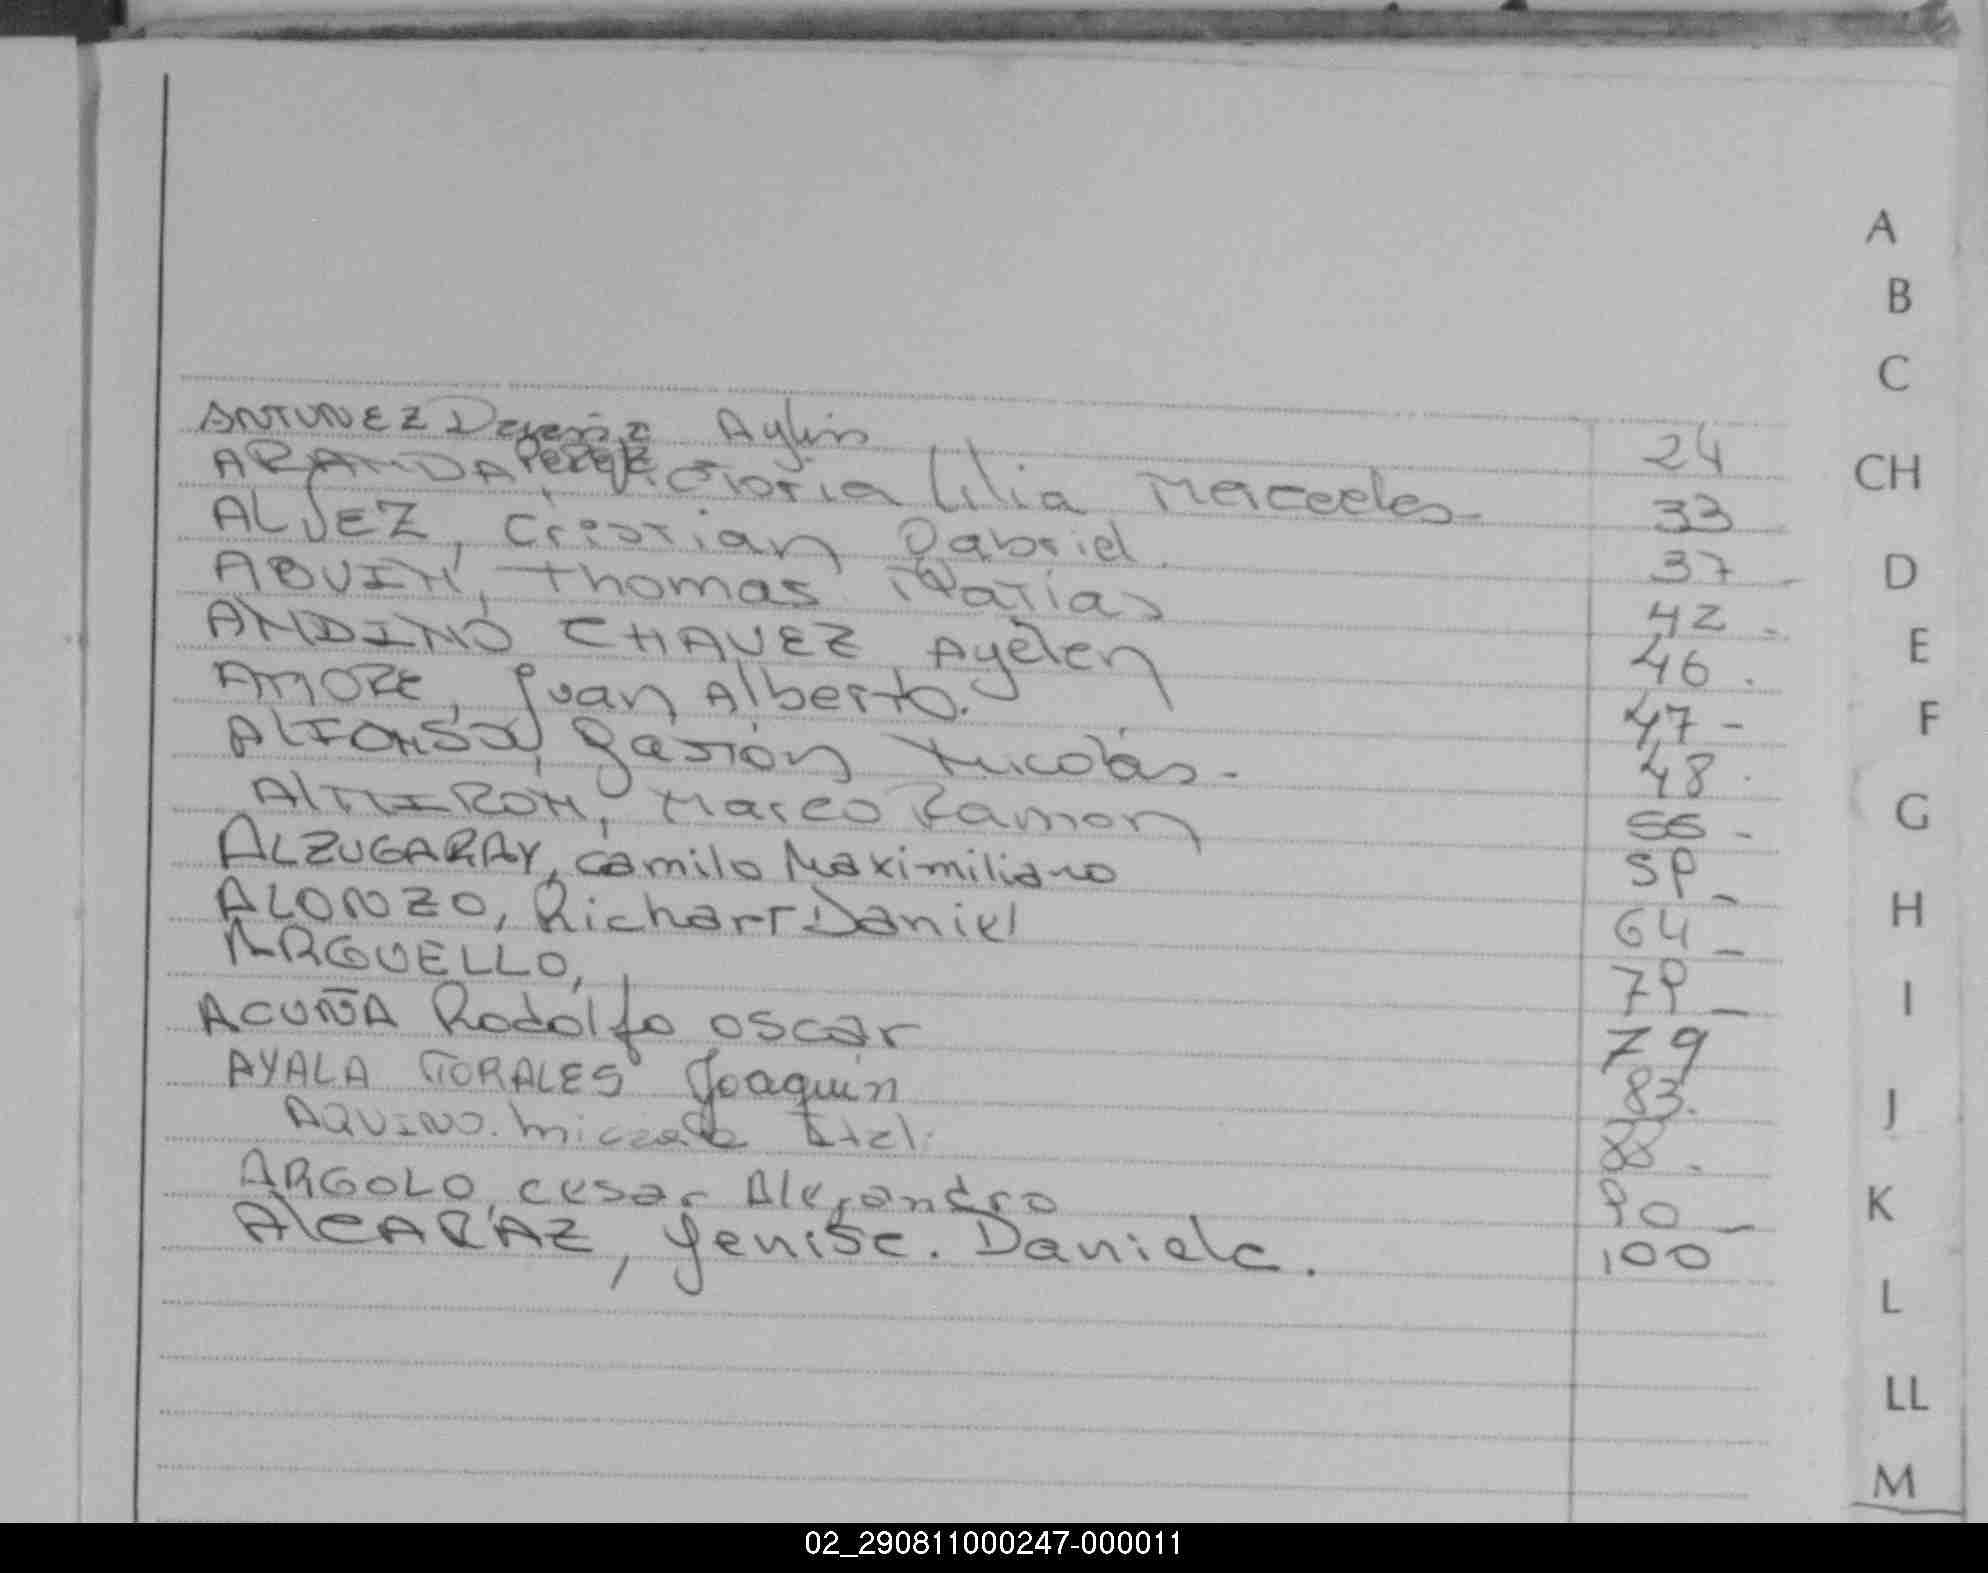 ANTUNEZ Aylin 24
ARANDA, PEREZ Victoria Lilia Mercedes 33
ALVEZ, Cristian Gabriel 37
ABUIN, Thomas Matías 42
ANDINO CHAVEZ, Ayelen 46
AMORE, Juan Alberto. 47
ALFONSO, Gastón Nicolás 48
AlMIRON, Marco Ramon 56
ALZUGARAY, Camilo Maximiliano 59
ALONZO, Richart Daniel 64
ARGUELLO, 79
ACUÑA Rodolfo oscar 79
AYALA TORALES Joaquin 83.
AQUINO. Micaela 88.
ARGOLO, cesar Alejandro 90
AlCARAZ, Yenise. Daniela. 100
A
B
C
CH
D
E
F
G
H
I
J
K
L
LL
M
02_290811000247-000011